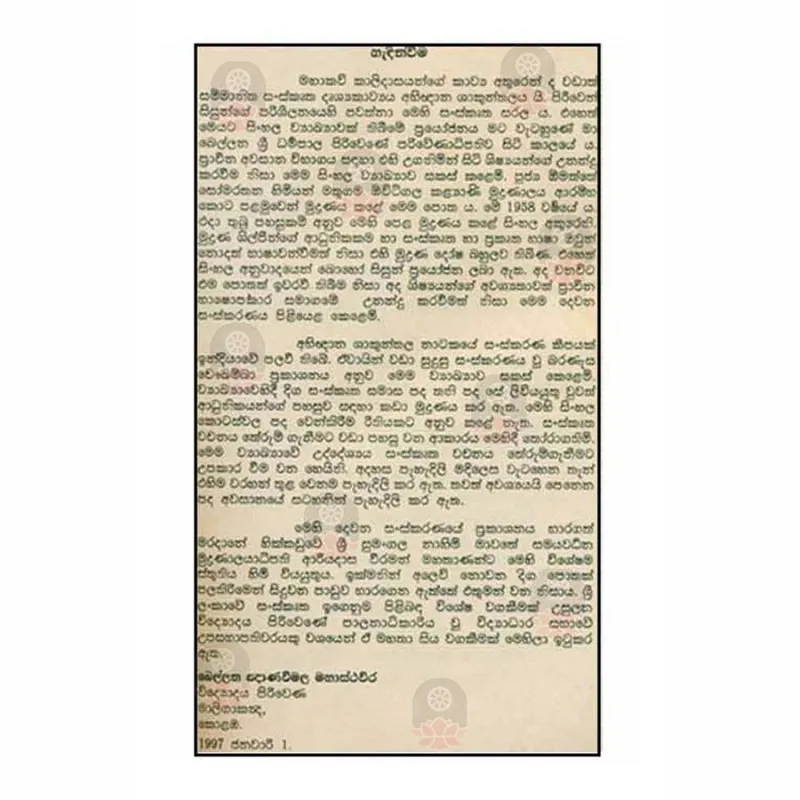 හැඳින්වීම
මහාකවි කාලිදාසයන්ගේ කාව්‍ය අතුරෙන් ද වඩාත්
සම්මානිත සංස්කෘත දෘශ්‍යකාව්‍යය අභිඥාන ශාකුන්තලය යි. පිරිවෙන්
සිසුන්ගේ පරිශීලනයෙහි පවත්නා මෙහි සංස්කෘත සරල ය. එහෙත්
මෙයට සිංහල ව්‍යාඛ්‍යාවක් තිබීමේ ප්‍රයෝජනය මට වැටහුණේ මා
බෙල්ලන ශ්‍රී ධර්මපාල පිරිවෙණේ පරිවේණාධිපතිව සිටි කාලයේ ය.
ප්‍රාචීන අවසාන විභාගය සඳහා එහි උගනිමින් සිටි ශිෂ්‍යයන්ගේ උනන්දු
කරවීම නිසා මෙම සිංහල ව්‍යාඛ්‍යාව සකස් කළෙමි. පූජ්‍ය ඕමත්තේ
සෝමරතන හිමියන් මතුගම මීවිටිගල කළ්‍යාණි මුද්‍රණාලය ආරම්භ
කොට පළමුවෙන් මුද්‍රණය කළේ මෙම පොත ය. මේ 1958 වර්ෂයේ ය.
එදා තුබු පහසුකම් අනුව මෙහි පෙළ මුද්‍රණය කළේ සිංහල අකුරෙනි.
මුද්‍රණ ශිල්පීන්ගේ ආධුනිකකම හා සංස්කෘත හා ප්‍රකෘත භාෂා ඔවුන්
නොදත් භාෂාවන්වීමත් නිසා එහි මුද්‍රණ දෝෂ බහුලව තිබිණ. එහෙත්
සිංහල අනුවාදයෙන් බොහෝ සිසුන් ප්‍රයෝජන ලබා ඇත. අද වනවිට
එම පොතක් ඉවරවී තිබීම නිසා අද ශිෂ්‍යයන්ගේ අවශ්‍යතාවත් ප්‍රාචීන
භාෂෝපකාර සමාගමේ උනන්දු කරවීමත් නිසා මෙම දෙවන
සංස්කරණය පිළියෙළ කෙළෙමි.
අභිඥාන ශාකුන්තල නාටකයේ සංස්කරණ කීපයක්
ඉන්දියාවේ පළවී තිබේ. ඒවායින් වඩා සුදුසු සංස්කරණය වූ බරණැස
චෞඛම්බා ප්‍රකාශනය අනුව මෙම ව්‍යාඛ්‍යාව සකස් කෙළෙමි.
ව්‍යාඛ්‍යාවෙහිදී දිග සංස්කෘත සමාස පද තනි පද සේ ලිවියයුතු වුවත්
ආධුනිකයන්ගේ පහසුව සඳහා කඩා මුද්‍රණය කර ඇත. මෙහි සිංහල
කොටස්වල පද වෙන්කිරීම රීතියකට අනුව කළේ නැත. සංස්කෘත
වචනය තේරුම් ගැනීමට වඩා පහසු වන ආකාරය මෙහිදී තෝරාගතිමි.
මෙම ව්‍යාඛ්‍යාවේ උද්දේශ්‍යය සංස්කෘත වචනය තේරුම්ගැනීමට
උපකාර වීම වන හෙයිනි. අදහස පැහැදිලි මදිලෙස වැටහෙන තැන්
එහිම වරහන් තුළ වෙනම පැහැදිලි කර ඇත. තවත් අවශ්‍යයයි පෙනෙන
පද අවසානයේ සටහනින් පැහැදිලි කර ඇත.
මෙහි දෙවන සංස්කරණයේ ප්‍රකාශනය භාරගත්
මරදානේ හික්කඩුවේ ශ්‍රී සුමංගල නාහිමි මාවතේ සමයවර්ධන
මුද්‍රණාලයාධිපති ආරියදාස වීරමන් මහතාණන්ට මෙහි විශේෂම
ස්තුතිය හිමි වියයුතුය. ඉක්මනින් අලෙවි නොවන දිග පොතක්
පලකිරීමෙන් සිදුවන පාඩුව භාරගෙන ඇත්තේ එතුමන් වන නිසාය. ශ්‍රී
ලංකාවේ සංස්කෘත ඉගෙනුම පිළිබඳ විශේෂ වගකීමක් උසුලන
විද්‍යොදය පිරිවෙණේ පාලනාධිකාරිය වූ විද්‍යාධාර සභාවේ
උපසභාපතිවරයකු වශයෙන් ඒ මහතා සිය වගකීමක් මෙහිලා ඉටුකර
ඇත.
බෙල්ලන ඤාණවිමල මහාස්ථවිර
විද්‍යොදය පිරිවෙණ
මාලිගාකන්ද,
කොළඹ.
1997 ජනවාරි 1.